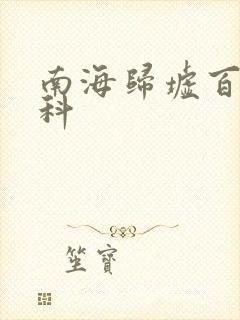 南海歸墟百
科
坐寶